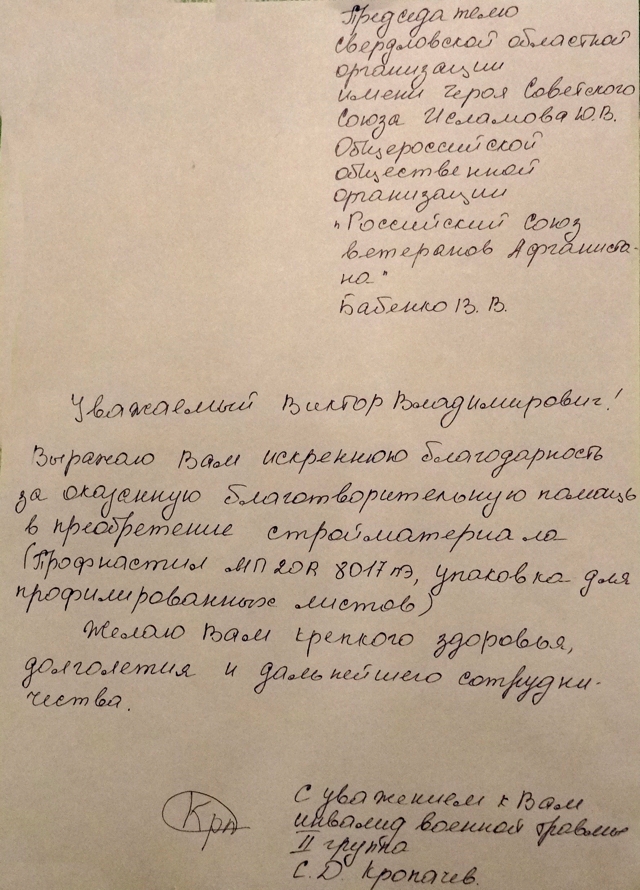 Председателю
Свердловской областной
организации
имени Героя Советского
Союза Исламова Ю.В.
Общероссийской
общественной
организации
"Российский Союз
ветеранов Афганиста-
на"
Бабенко В. В.
Уважаемый Виктор Владимирович!
Выражаю Вам искреннюю благодарность
за оказенную благотворительную помощь
в преобретение стройматериала
(Профнастил МП20R 8017пэ, упаковка для
профилированных листов)
Желаю Вам крепкого здоровья,
долголетия и дальнейшего сотрудни-
чества.
С уважением к Вам
Крп инвалид военной травмы
II группа
С.D. Кропачев.